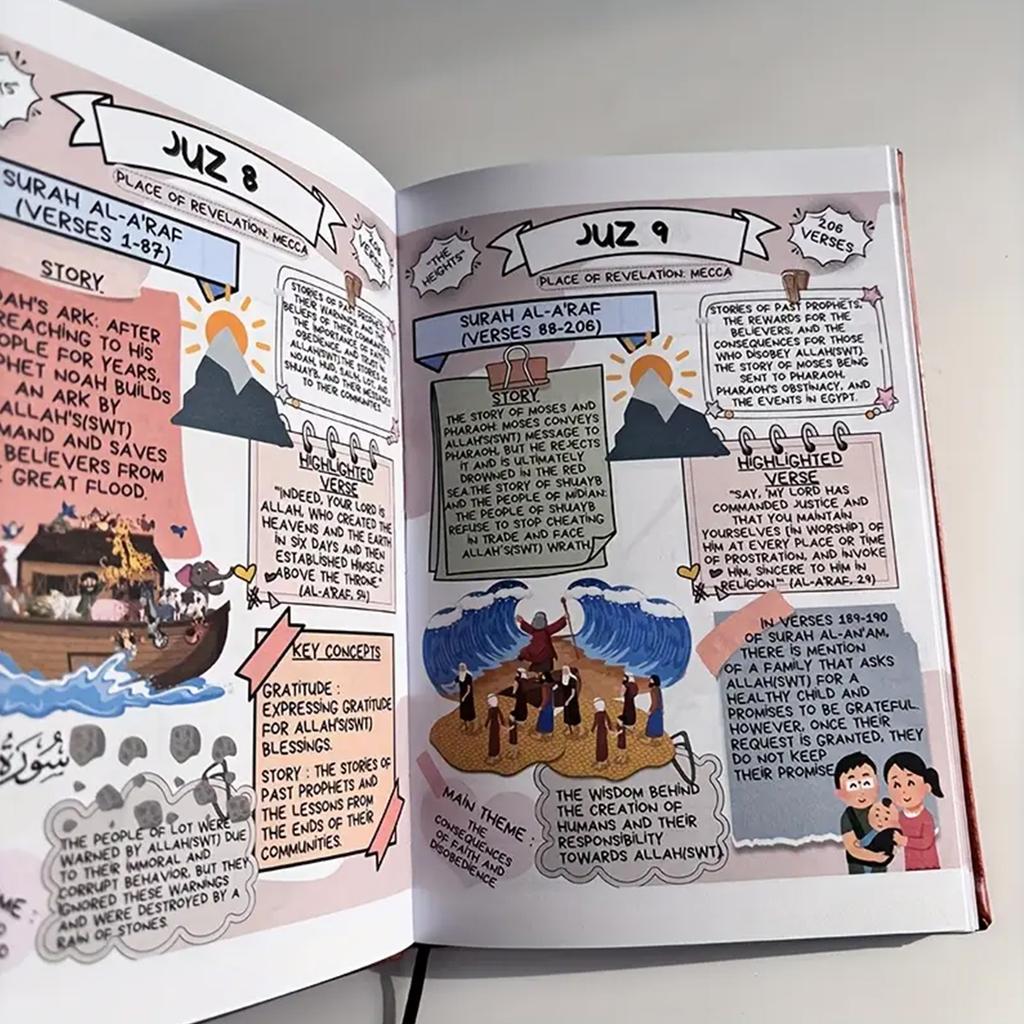 JUZ 8
PLACE OF REVELATION: MECCA
SURAH AL-A'RAF
(VERSES 1-87)
VERSES
STORY
ARK: AFTER
TO HIS
FOR YEARS,
NOAH BUILDS
AN ARK BY
ALLAH'S(SWT)
AND SAVES
BELIEVERS FROM
GREAT FLOOD.
STORIES OF PAST PROPHETS,
THEIR WARNINGS, AND THE
BELIEFS OF THEIR COMMUNITIES.
THE IMPORTANCE OF FAITH,
OBEDIENCE AND TRUST IN
ALLAH(SWT). THE STORIES OF
NOAH, HUD, SALIH, LOT, AND
SHUAYB, AND THEIR MESSAGES
TO THEIR COMMUNITIES.
HIGHLIGHTED
VERSE
"INDEED, YOUR LORD IS
ALLAH, WHO CREATED THE
HEAVENS AND THE EARTH
IN SIX DAYS AND THEN
ESTABLISHED HIMSELF
ABOVE THE THRONE."
(AL-A'RAF, 54)
KEY CONCEPTS
GRATITUDE :
EXPRESSING GRATITUDE
FOR ALLAH'S(SWT)
BLESSINGS.
STORY : THE STORIES OF
PAST PROPHETS AND
THE LESSONS FROM
THE ENDS OF THEIR
COMMUNITIES.
سُورَةُ
THE PEOPLE OF LOT WERE
WARNED BY ALLAH(SWT) DUE
TO THEIR IMMORAL AND
CORRUPT BEHAVIOR, BUT THEY
IGNORED THESE WARNINGS
AND WERE DESTROYED BY A
RAIN OF STONES.
"THE
HEIGHTS"
JUZ 9
PLACE OF REVELATION: MECCA
206
VERSES
SURAH AL-A'RAF
(VERSES 88-206)
STORIES OF PAST PROPHETS,
THE REWARDS FOR THE
BELIEVERS, AND THE
CONSEQUENCES FOR THOSE
WHO DISOBEY ALLAH(SWT).
THE STORY OF MOSES BEING
SENT TO PHARAOH,
PHARAOH'S OBSTINACY, AND
THE EVENTS IN EGYPT.
STORY
THE STORY OF MOSES AND
PHARAOH: MOSES CONVEYS
ALLAH'S(SWT) MESSAGE TO
PHARAOH, BUT HE REJECTS
IT AND IS ULTIMATELY
DROWNED IN THE RED
SEA.THE STORY OF SHUAYB
AND THE PEOPLE OF MIDIAN:
THE PEOPLE OF SHUAYB
REFUSE TO STOP CHEATING
IN TRADE AND FACE
ALLAH'S(SWT) WRATH.
HIGHLIGHTED
VERSE
"SAY, 'MY LORD HAS
COMMANDED JUSTICE AND
THAT YOU MAINTAIN
YOURSELVES [IN WORSHIP] OF
HIM AT EVERY PLACE OR TIME
OF PROSTRATION, AND INVOKE
HIM, SINCERE TO HIM IN
RELIGION.'" (AL-A'RAF, 29)
IN VERSES 189-190
OF SURAH AL-AN'AM,
THERE IS MENTION
OF A FAMILY THAT ASKS
ALLAH(SWT) FOR A
HEALTHY CHILD AND
PROMISES TO BE GRATEFUL.
HOWEVER, ONCE THEIR
REQUEST IS GRANTED, THEY
DO NOT KEEP
THEIR PROMISE.
MAIN THEME :
THE
CONSEQUENCES
OF FAITH AND
DISOBEDIENCE
THE WISDOM BEHIND
THE CREATION OF
HUMANS AND THEIR
RESPONSIBILITY
TOWARDS ALLAH(SWT)